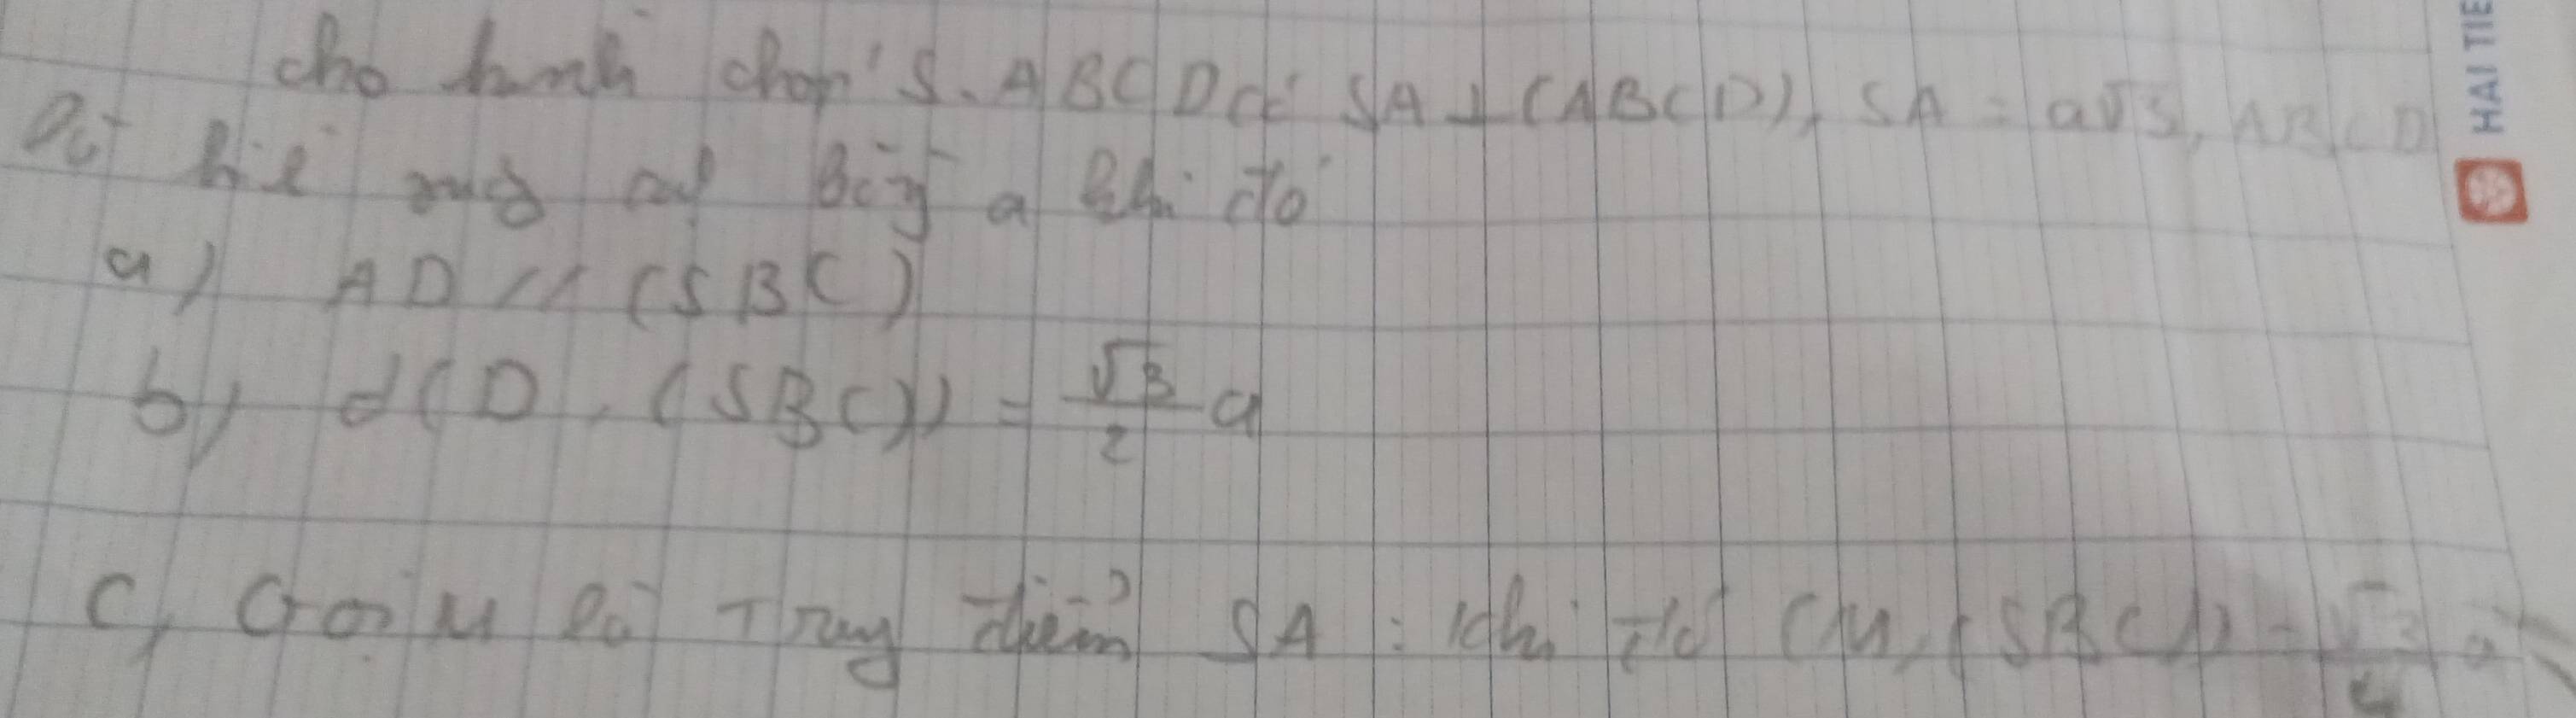 cho hình chóp S.ABCD có SA ⊥ (ABCD), SA = a√3, ABCD
là hì vuông cạ bằng a khi đó
a) AD // (SBC)
b, d(D, (SBC)) = √3/2 a
c, Gọi M là Trung điểm SA : khi đó (M, (SBC)) = √3/4 a
HAI TIE